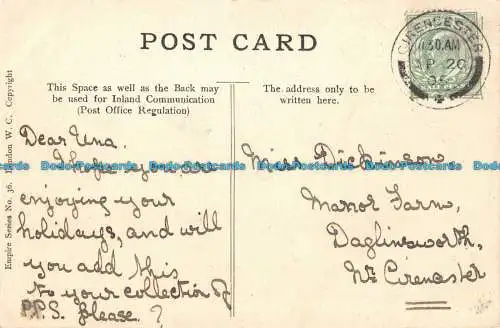 POST CARD
This Space as well as the Back may
be used for Inland Communication
(Post Office Regulation)
The address only to be
written here.
CIRENCESTER
30 AM
20
Empire Series No. 36. London W. C. Copyright
Dear Una.
I hope you are
enjoying your
holidays, and will
you add this
to your collection of
P.P.S. please?
Miss Dickinson,
Manor Farm,
Daglinsworth,
Nr. Cirencester
Dobo-Postcards